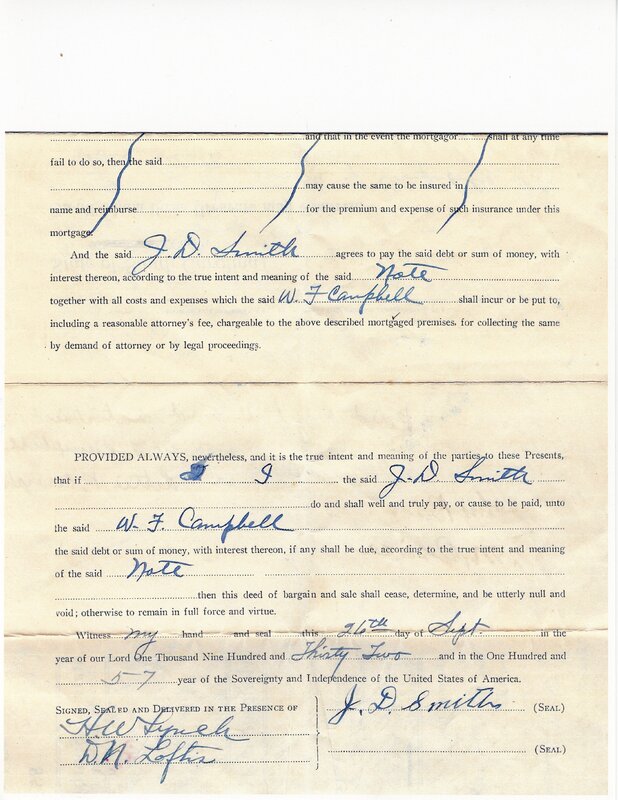 and that in the event the mortgagor shall at any time
fail to do so, then the said
may cause the same to be insured in
name and reimburse for the premium and expense of such insurance under this
mortgage.
And the said J. D. Smith agrees to pay the said debt or sum of money, with
interest thereon, according to the true intent and meaning of the said Note
together with all costs and expenses which the said W. F Campbell shall incur or be put to,
including a reasonable attorney's fee, chargeable to the above described mortgaged premises, for collecting the same
by demand of attorney or by legal proceedings.
PROVIDED ALWAYS, nevertheless, and it is the true intent and meaning of the parties to these Presents,
that if I the said J. D. Smith
do and shall well and truly pay, or cause to be paid, unto
the said W. F. Campbell
the said debt or sum of money, with interest thereon, if any shall be due, according to the true intent and meaning
of the said Note
then this deed of bargain and sale shall cease, determine, and be utterly null and
void; otherwise to remain in full force and virtue.
Witness my hand and seal this 26th day of Sept. in the
year of our Lord One Thousand Nine Hundred and Thirty Two and in the One Hundred and
57 year of the Sovereignty and Independence of the United States of America.
SIGNED, SEALED AND DELIVERED IN THE PRESENCE OF
J. D. Smith (SEAL)
H W Lynch
D. N. Loftis
(SEAL)